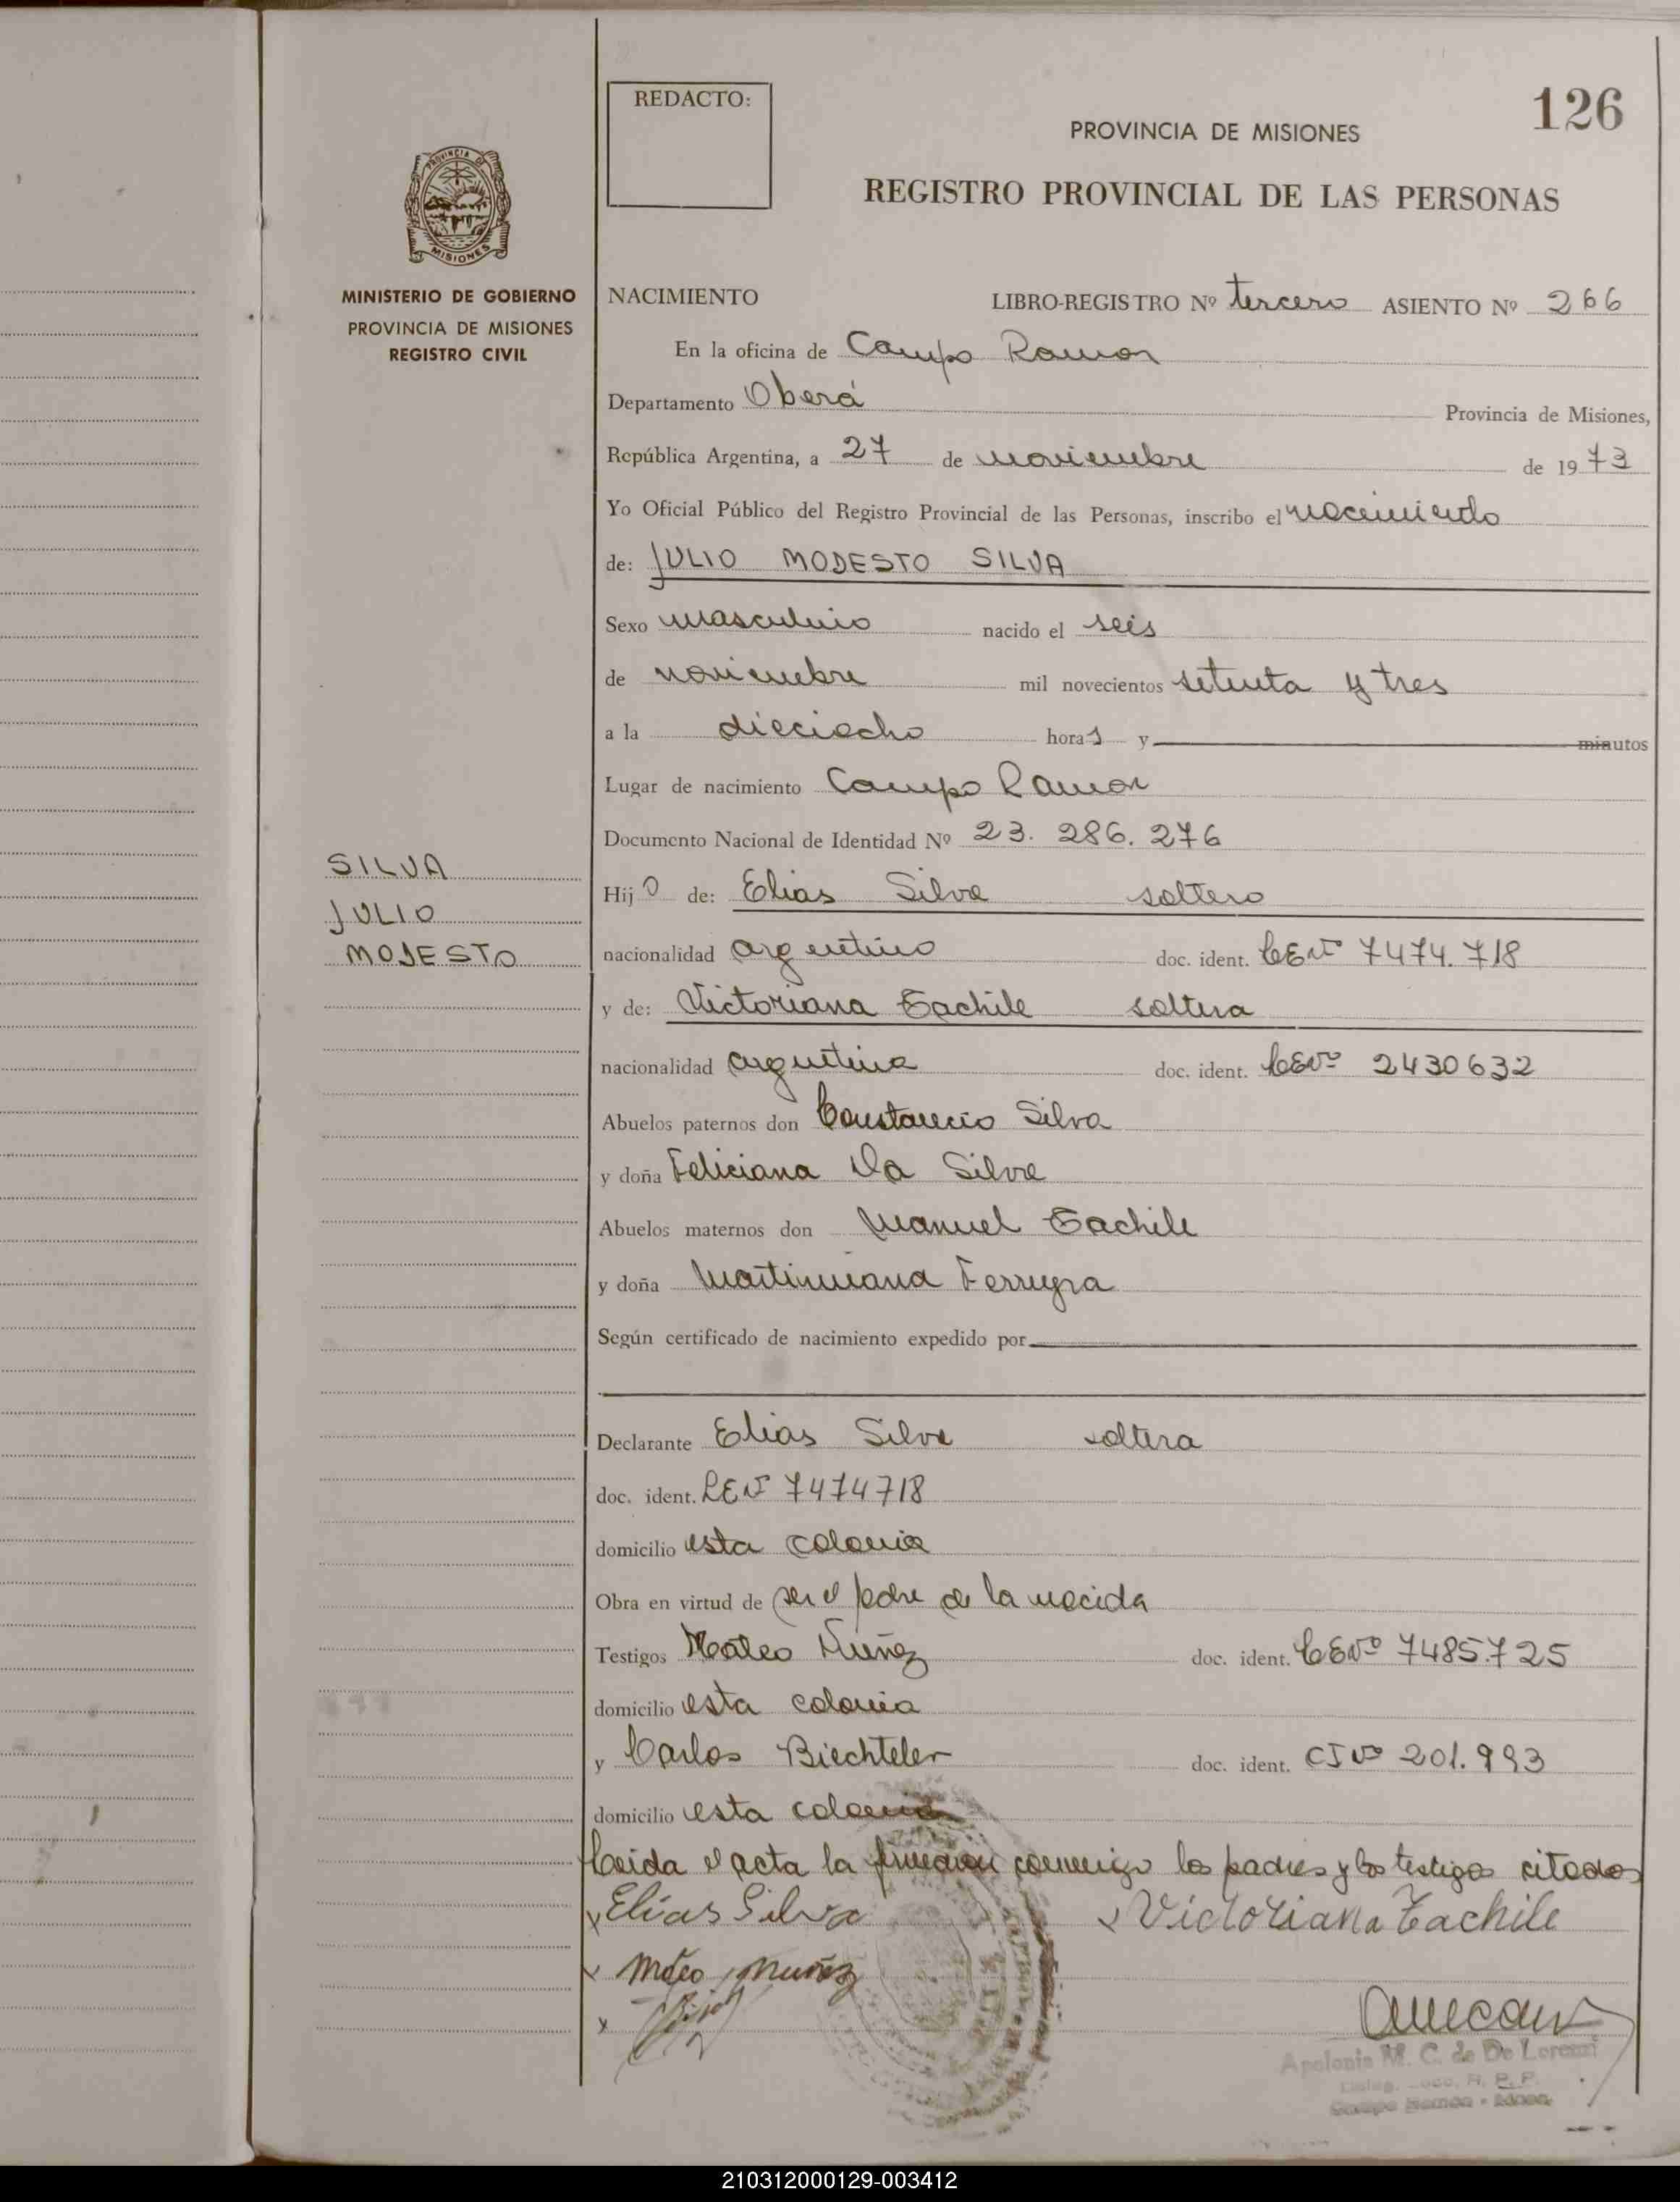 REDACTO:
126
PROVINCIA DE MISIONES
REGISTRO PROVINCIAL DE LAS PERSONAS
PROVINCIA DE
MISIONES
MINISTERIO DE GOBIERNO
PROVINCIA DE MISIONES
REGISTRO CIVIL
NACIMIENTO LIBRO-REGISTRO Nº tercero ASIENTO Nº 266
En la oficina de Campo Ramon
Departamento Oberá Provincia de Misiones,
República Argentina, a 27 de noviembre de 1973
Yo Oficial Público del Registro Provincial de las Personas, inscribo el nacimiento
de: JULIO MODESTO SILVA
Sexo masculino nacido el seis
de noviembre mil novecientos setenta y tres
a la dieciocho horas y minutos
Lugar de nacimiento Campo Ramon
Documento Nacional de Identidad Nº 23.286.276
SILVA
JULIO
MODESTO
Hijo de: Elias Silva soltero
nacionalidad argentino doc. ident. LENº 7474.718
y de: Victoriana Tachile soltera
nacionalidad argentina doc. ident. LENº 2430632
Abuelos paternos don Constancio Silva
y doña Feliciana Da Silva
Abuelos maternos don Manuel Tachile
y doña Martimiana Ferreyra
Según certificado de nacimiento expedido por
Declarante Elias Silva soltera
doc. ident. LENº 7474718
domicilio esta colonia
Obra en virtud de ser el padre de la nacida
Testigos Mateo Nuñez doc. ident. LENº 7485.725
domicilio esta colonia
y Carlos Biechteler doc. ident. CINº 201.993
domicilio esta colonia
Leida el acta la firmaron conmigo los padres y los testigos citados
x Elías Silva x Victoriana Tachile
x Mateo Muñez
x
Apolonia M. C. de De Lorenzi
R. P. P.
Campo Ramón - Mnes.
210312000129-003412